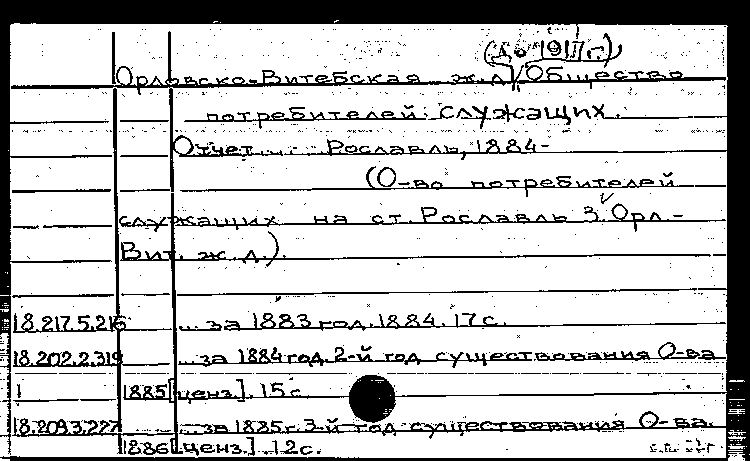 (до 1917 г.),
Орловско-Витебская ж.д., Общество
потребителей служащих.
Отчет... Рославль, 1884-
(О-во потребителей
служащих на ст. Рославль З. Орл.-
Вит. ж. д.).
18.217.5.216 ... за 1883 год. 1884. 17 с.
18.202.2.319 ... за 1884 год. 2-й год существования О-ва
1 1885 [ценз.]. 15 с.
18.209.3.227 ... за 1885 г. 3-й год существования О-ва.
1886 [ценз.]. 12 с.